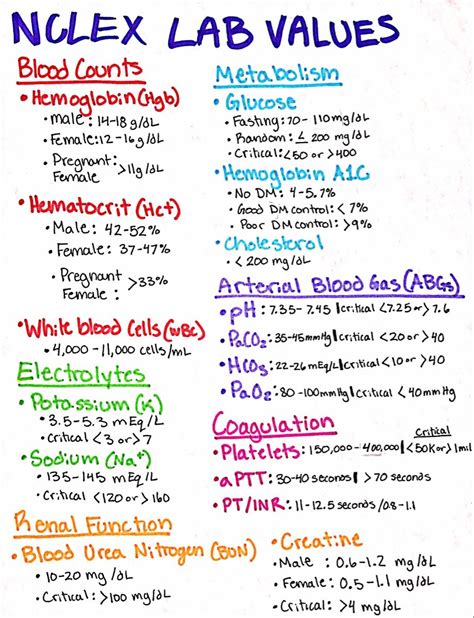 NCLEX LAB VALUES
Blood Counts
• Hemoglobin (Hgb)
• male: 14-18 g/dL
• Female: 12-16 g/dL
• Pregnant Female : >11g/dL
• Hematocrit (Hct)
• Male: 42-52%
• Female: 37-47%
• Pregnant Female : >33%
• White blood Cells (WBC)
• 4,000-11,000 cells/mL
Electrolytes
• Potassium (K)
• 3.5-5.3 mEq/L
• critical <3 or >7
• Sodium (Na+)
• 135-145 mEq/L
• Critical <120 or >160
Renal Function
• Blood Urea Nitrogen (BUN)
• 10-20 mg/dL
• Critical: >100 mg/dL
Metabolism
• Glucose
• Fasting: 70-110mg/dL
• Random: ≤ 200 mg/dL
• Critical: <50 or >400
• Hemoglobin A1C
• No DM: 4-5.7%
• Good DM control: < 7%
• Poor DM control: >9%
• Cholesterol
• < 200 mg/dL
Arterial Blood Gas (ABGs)
• pH: 7.35-7.45 | critical <7.25 or > 7.6
• PaCO2: 35-45mmHg | critical <20 or >40
• HCO3: 22-26 mEq/L | critical <10 or >40
• PaO2: 80-100mmHg | Critical < 40mmHg
Coagulation
Critical
• Platelets: 150,000-400,000 | <50K or >1mil
• aPTT: 30-40 seconds | > 70 seconds
• PT/INR: 11-12.5 seconds / 0.8-1.1
• Creatine
• Male : 0.6-1.2 mg/dL
• Female: 0.5-1.1 mg/dL
• Critical: >4 mg/dL